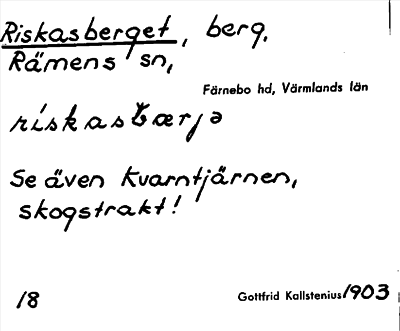 Riskasberget, berg.
Rämens sn,
Färnebo hd, Värmlands län
riskasbærjə
Se även Kvarntjärnen,
skogstrakt!
18
Gottfrid Kallstenius 1903